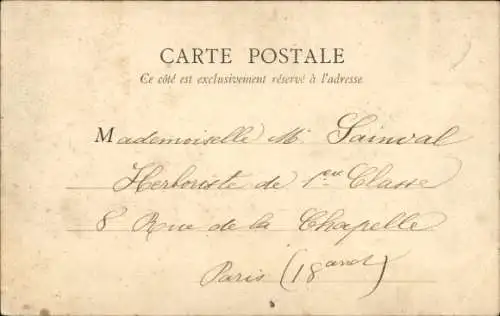 CARTE POSTALE
Ce côté est exclusivement réservé à l'adresse
Mademoiselle M. Sainval
Herboriste de 1ère Classe
8 Rue de la Chapelle
Paris (18 arrdt)